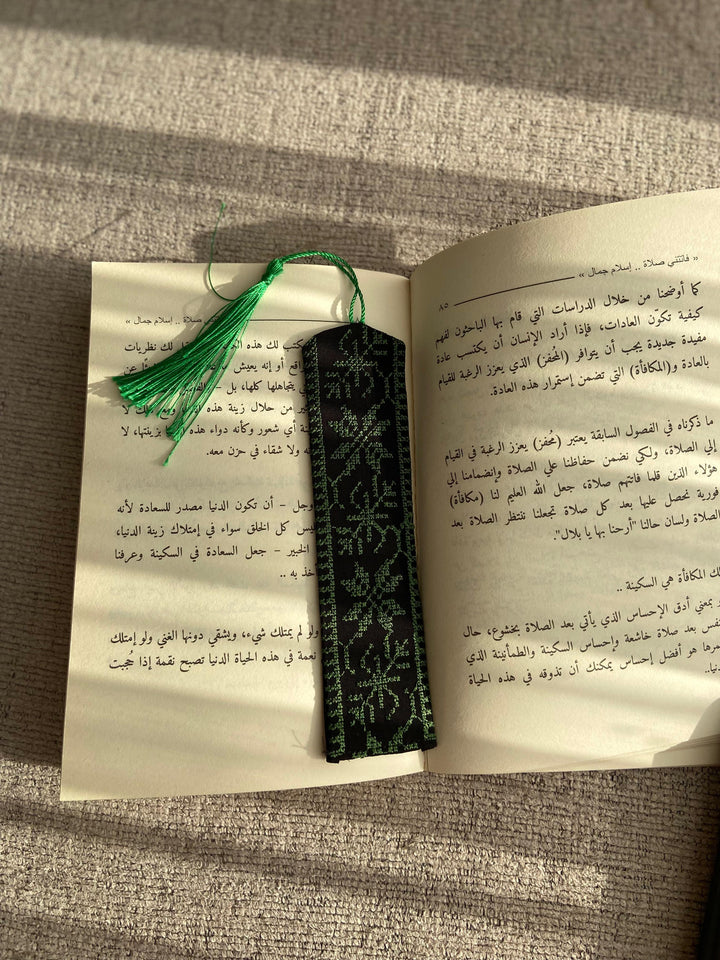 « فاتتني صلاة .. إسلام جمال »
٨٥
كما أوضحنا من خلال الدراسات التي قام بها الباحثون لفهم
كيفية تكوّن العادات، فإذا أراد الإنسان أن يكتسب عادة
مفيدة جديدة يجب أن يتوافر (المُحفز) الذي يعزز الرغبة للقيام
بالعادة و(المكافأة) التي تضمن إستمرار هذه العادة.
ما ذكرناه في الفصول السابقة يعتبر (مُحفز) يعزز الرغبة في القيام
إلي الصلاة، ولكي نضمن حفاظنا علي الصلاة وإنضمامنا إلي
هؤلاء الذين قلما فاتتهم صلاة، جعل الله العليم لنا (مكافأة)
فورية نحصل عليها بعد كل صلاة تجعلنا ننتظر الصلاة بعد
الصلاة ولسان حالنا "أرحنا بها يا بلال".
المكافأة هي السكينة ..
بمعني أدق الإحساس الذي يأتي بعد الصلاة بخشوع، حال
بعد صلاة خاشعة وإحساس السكينة والطمأنينة الذي
هو أفضل إحساس يمكنك أن تذوقه في هذه الحياة
صلاة .. إسلام جمال »
كتب لك هذه لك نظريات
أو إنه يعيش عن
يتجاهلها كلها، بل –
من خلال زينة هذه
أي شعور وكأنه دواء هذه بزينتها، لا
ولا شقاء في حزن معه.
وجل – أن تكون الدنيا مصدر للسعادة لأنه
كل الخلق سواء في إمتلاك زينة الدنيا،
الخبير – جعل السعادة في السكينة وعرفنا
به ..
ولو لم يمتلك شيء، ويشقي دونها الغني ولو إمتلك
نعمة في هذه الحياة الدنيا تصبح نقمة إذا حُجبت